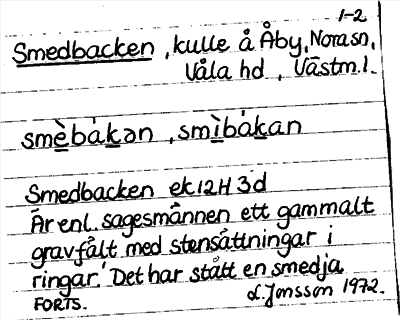 1-2
Smedbacken, kulle å Åby, Nora sn,
Våla hd, Västm.l.
smèbákən, smìbákan
Smedbacken ek 12H 3d
Är enl. sagesmannen ett gammalt
gravfält med stensättningar i
ringar. Det har stått en smedja
FORTS. L. Jonsson 1972.